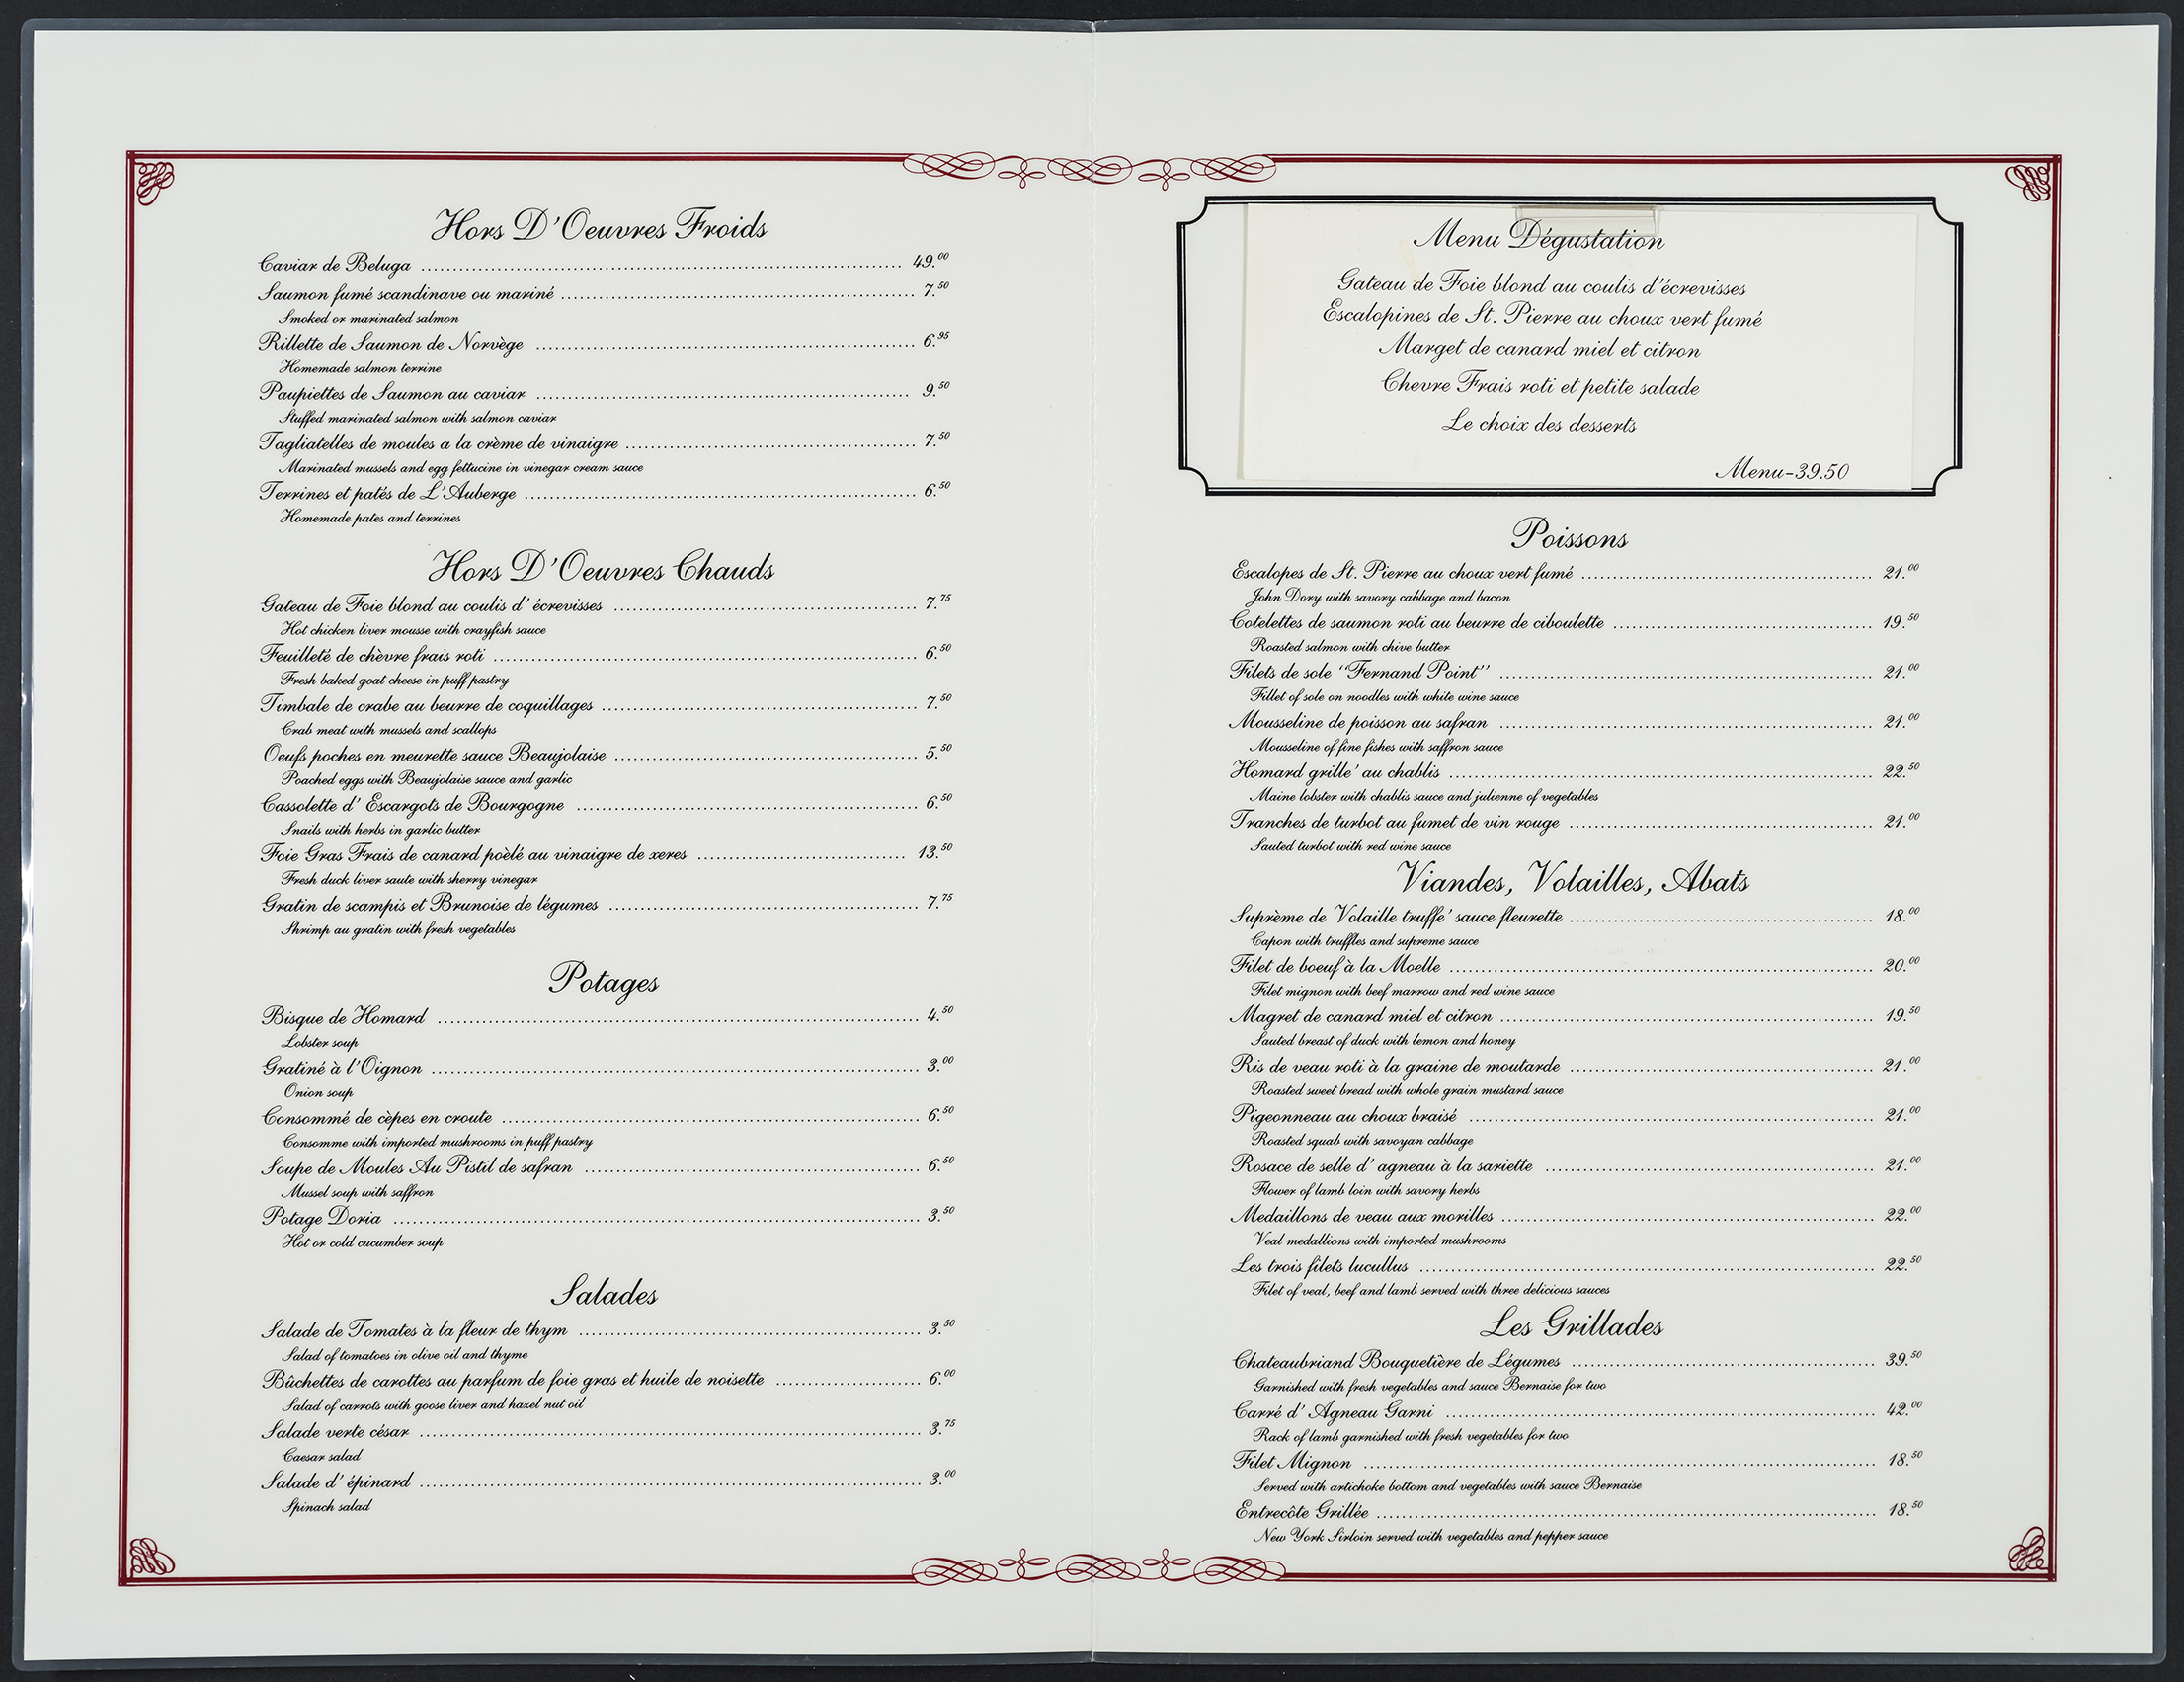 Hors D'Oeuvres Froids
Caviar de Beluga ........ 49.00
Saumon fumé scandinave ou mariné ........ 7.50
Smoked or marinated salmon
Rillette de Saumon de Norvège ........ 6.95
Homemade salmon terrine
Paupiettes de Saumon au caviar ........ 9.50
Stuffed marinated salmon with salmon caviar
Tagliatelles de moules a la crème de vinaigre ........ 7.50
Marinated mussels and egg fettucine in vinegar cream sauce
Terrines et patés de L'Auberge ........ 6.50
Homemade pates and terrines
Hors D'Oeuvres Chauds
Gateau de Foie blond au coulis d' écrevisses ........ 7.75
Hot chicken liver mousse with crayfish sauce
Feuilleté de chèvre frais roti ........ 6.50
Fresh baked goat cheese in puff pastry
Timbale de crabe au beurre de coquillages ........ 7.50
Crab meat with mussels and scallops
Oeufs poches en meurette sauce Beaujolaise ........ 5.50
Poached eggs with Beaujolaise sauce and garlic
Cassolette d' Escargots de Bourgogne ........ 6.50
Snails with herbs in garlic butter
Foie Gras Frais de canard poèlé au vinaigre de xeres ........ 13.50
Fresh duck liver saute with sherry vinegar
Gratin de scampis et Brunoise de légumes ........ 7.75
Shrimp au gratin with fresh vegetables
Potages
Bisque de Homard ........ 4.50
Lobster soup
Gratiné à l'Oignon ........ 3.00
Onion soup
Consommé de cèpes en croute ........ 6.50
Consomme with imported mushrooms in puff pastry
Soupe de Moules Au Pistil de safran ........ 6.50
Mussel soup with saffron
Potage Doria ........ 3.50
Hot or cold cucumber soup
Salades
Salade de Tomates à la fleur de thym ........ 3.50
Salad of tomatoes in olive oil and thyme
Bûchettes de carottes au parfum de foie gras et huile de noisette ........ 6.00
Salad of carrots with goose liver and hazel nut oil
Salade verte césar ........ 3.75
Caesar salad
Salade d' épinard ........ 3.00
Spinach salad
Menu Dégustation
Gateau de Foie blond au coulis d'écrevisses
Escalopines de St. Pierre au choux vert fumé
Marget de canard miel et citron
Chevre Frais roti et petite salade
Le choix des desserts
Menu-39.50
Poissons
Escalopes de St. Pierre au choux vert fumé ........ 21.00
John Dory with savory cabbage and bacon
Cotelettes de saumon roti au beurre de ciboulette ........ 19.50
Roasted salmon with chive butter
Filets de sole "Fernand Point" ........ 21.00
Fillet of sole on noodles with white wine sauce
Mousseline de poisson au safran ........ 21.00
Mousseline of fine fishes with saffron sauce
Homard grille' au chablis ........ 22.50
Maine lobster with chablis sauce and julienne of vegetables
Tranches de turbot au fumet de vin rouge ........ 21.00
Sauted turbot with red wine sauce
Viandes, Volailles, Abats
Suprème de Volaille truffe' sauce fleurette ........ 18.00
Capon with truffles and supreme sauce
Filet de boeuf à la Moelle ........ 20.00
Filet mignon with beef marrow and red wine sauce
Magret de canard miel et citron ........ 19.50
Sauted breast of duck with lemon and honey
Ris de veau roti à la graine de moutarde ........ 21.00
Roasted sweet bread with whole grain mustard sauce
Pigeonneau au choux braisé ........ 21.00
Roasted squab with savoyan cabbage
Rosace de selle d' agneau à la sariette ........ 21.00
Flower of lamb loin with savory herbs
Medaillons de veau aux morilles ........ 22.00
Veal medallions with imported mushrooms
Les trois filets lucullus ........ 22.50
Filet of veal, beef and lamb served with three delicious sauces
Les Grillades
Chateaubriand Bouquetière de Légumes ........ 39.50
Garnished with fresh vegetables and sauce Bernaise for two
Carré d' Agneau Garni ........ 42.00
Rack of lamb garnished with fresh vegetables for two
Filet Mignon ........ 18.50
Served with artichoke bottom and vegetables with sauce Bernaise
Entrecôte Grillée ........ 18.50
New York Sirloin served with vegetables and pepper sauce